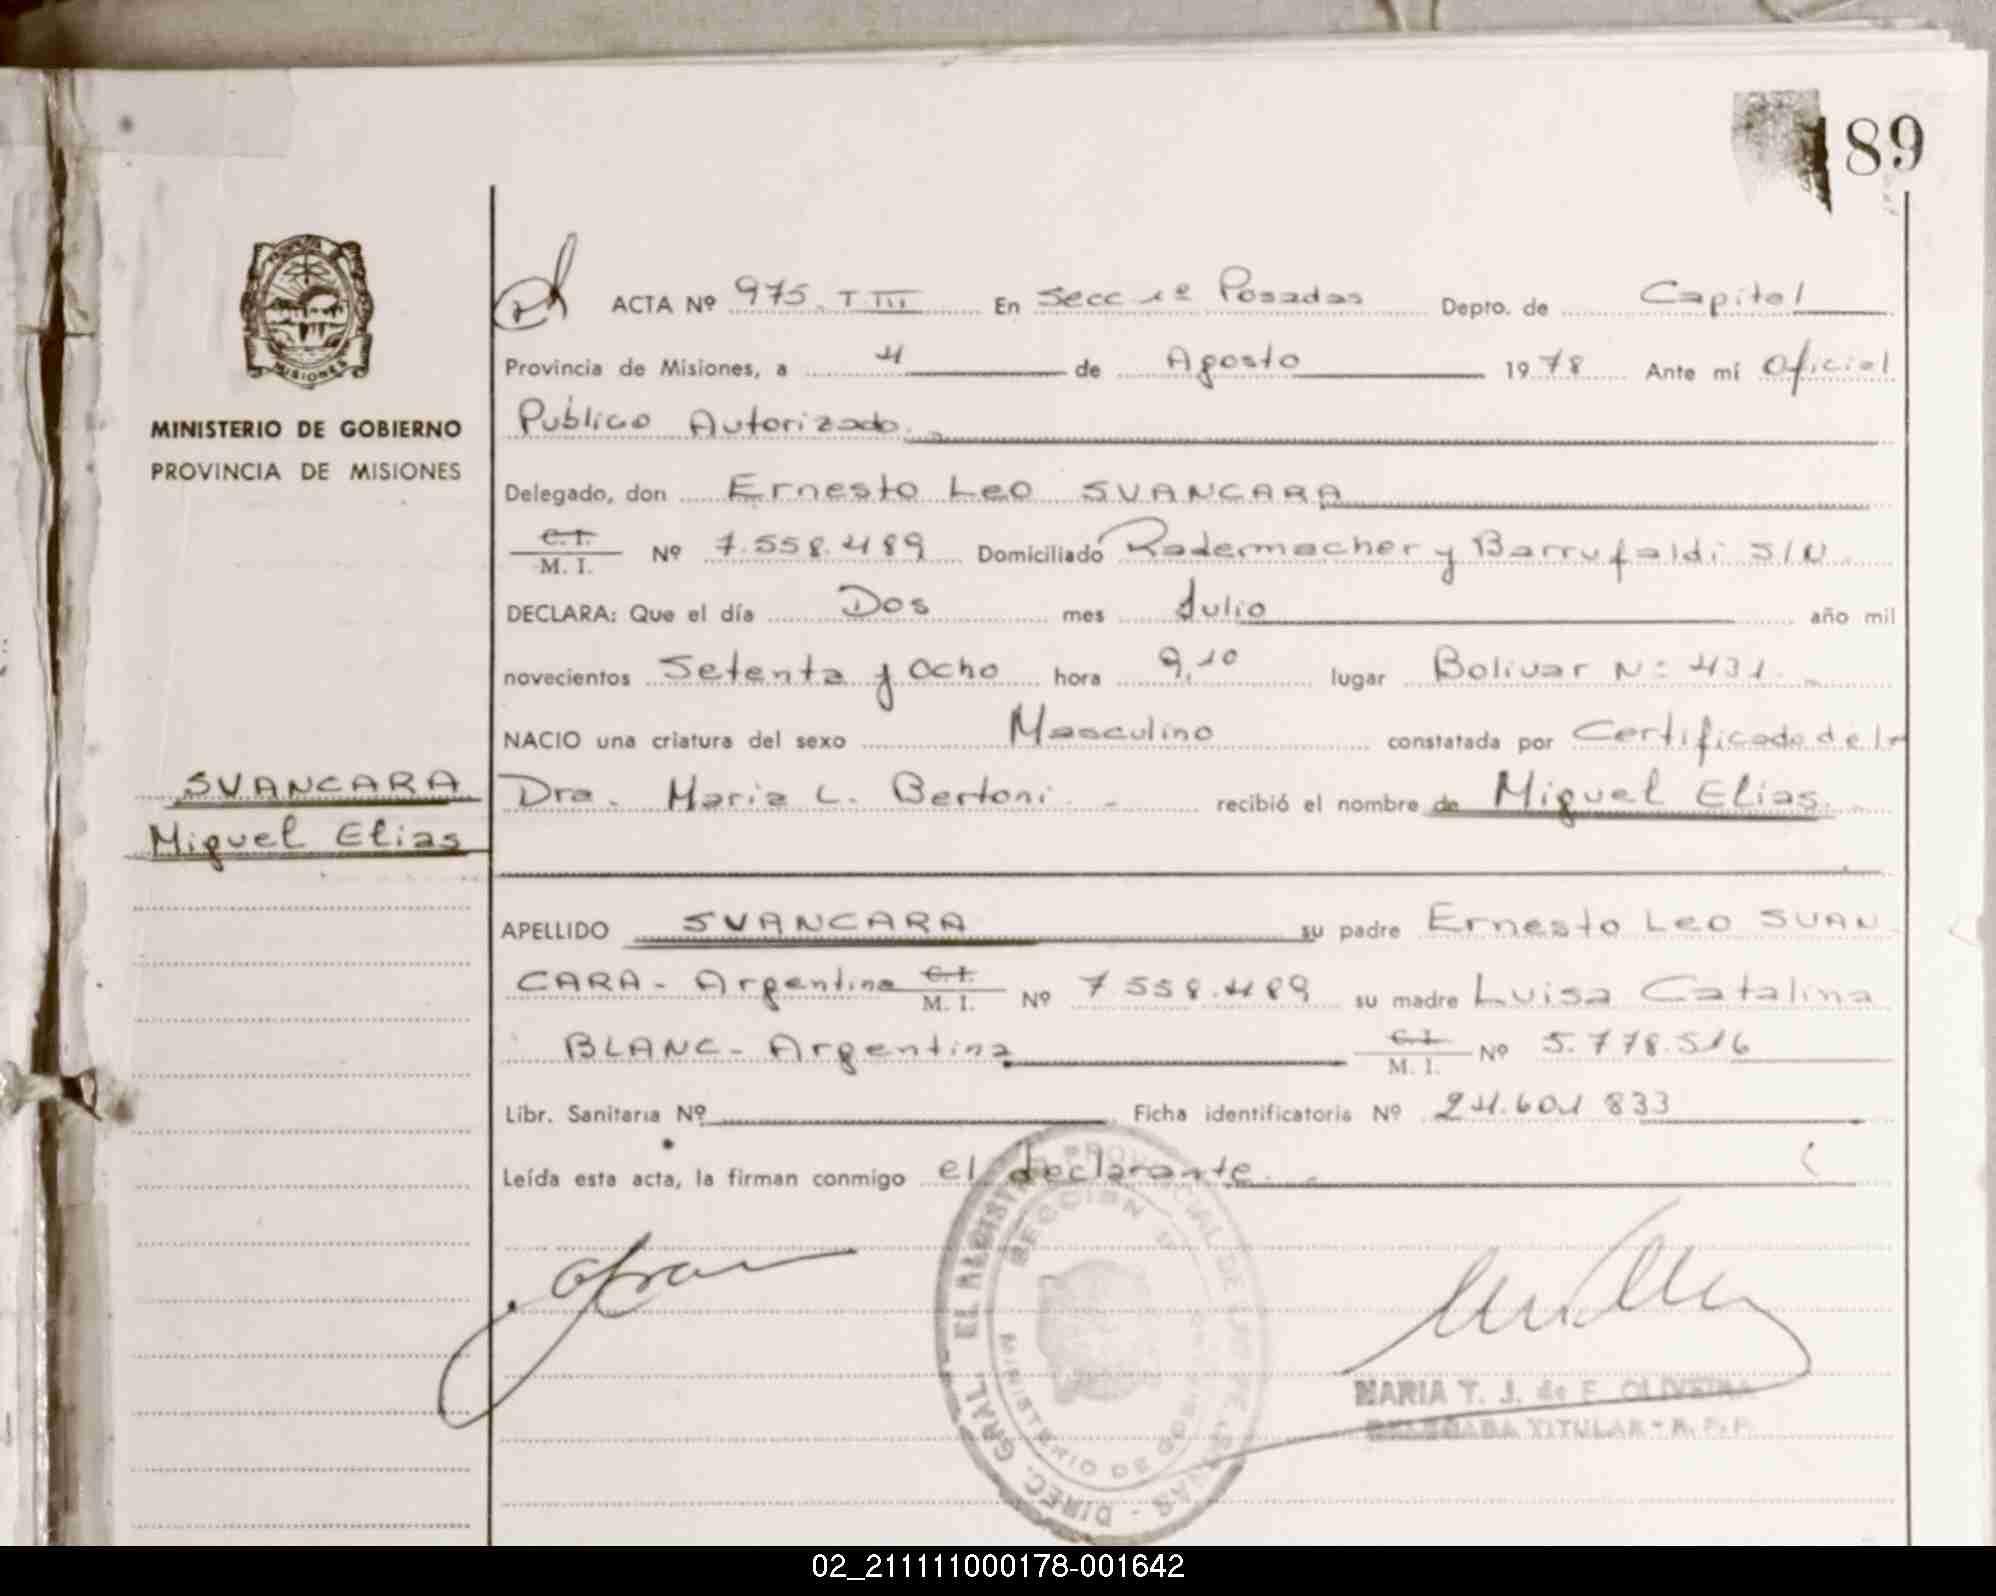 89
ACTA Nº 975. T III En Secc 1º Posadas Depto. de Capital
Provincia de Misiones, a 4 de Agosto 1978 Ante mí Oficial
Público Autorizado.
MISIONES
MINISTERIO DE GOBIERNO
PROVINCIA DE MISIONES
Delegado, don Ernesto Leo SVANCARA
C.I.
M. I. Nº 7.558.489 Domiciliado Radermacher y Barrufaldi S/N.
DECLARA: Que el día Dos mes Julio año mil
novecientos Setenta y Ocho hora 9,10 lugar Bolivar Nº 431.
NACIO una criatura del sexo Masculino constatada por Certificado de la
SVANCARA
Miguel Elias
Dra. Maria L. Bertoni. recibió el nombre de Miguel Elias.
APELLIDO SVANCARA su padre Ernesto Leo SVAN
CARA - Argentina C.I. M. I. Nº 7558.489 su madre Luisa Catalina
BLANC - Argentina C.I. M. I. Nº 5.778.516
Libr. Sanitaria Nº Ficha identificatoria Nº 24.601 833
Leída esta acta, la firman conmigo el declarante.
SECCION 1º
MINISTERIO DE GOBIERNO
MARIA T. J. de F. OLIVEIRA
DELEGADA TITULAR - R. P. P.
02_211111000178-001642